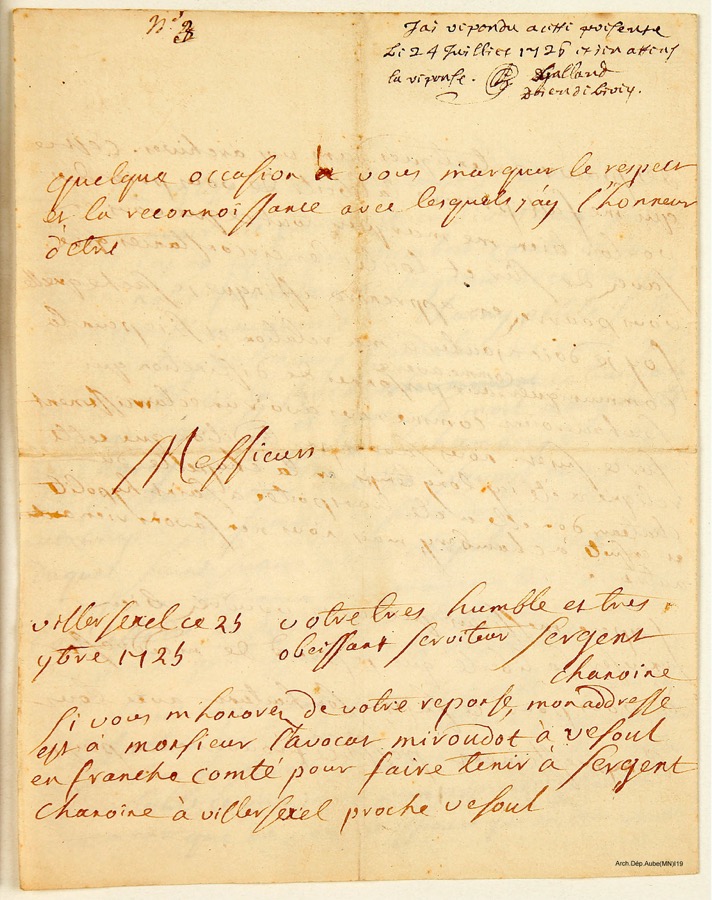 N.o 3
J'ai repondu a cette presente
le 24 Juilliet 1726 et j'en attens
la reponse. Galland
Prieur de Lirey.
quelque occasion a vous marquer le respect
et la reconnoissance avec lesquels j'ay l'honneur
d'etre
Messieurs
villersexel ce 25 votre tres humble et tres
9bre 1725 obeissant serviteur Sergent
chanoine
si vous m'honorez de votre reponse, mon addresse
est à monsieur l'avocat miroudot à vesoul
en franche comté pour faire tenir à Sergent
chanoine à villersexel proche vesoul
Arch.Dép.Aube(MN)I19